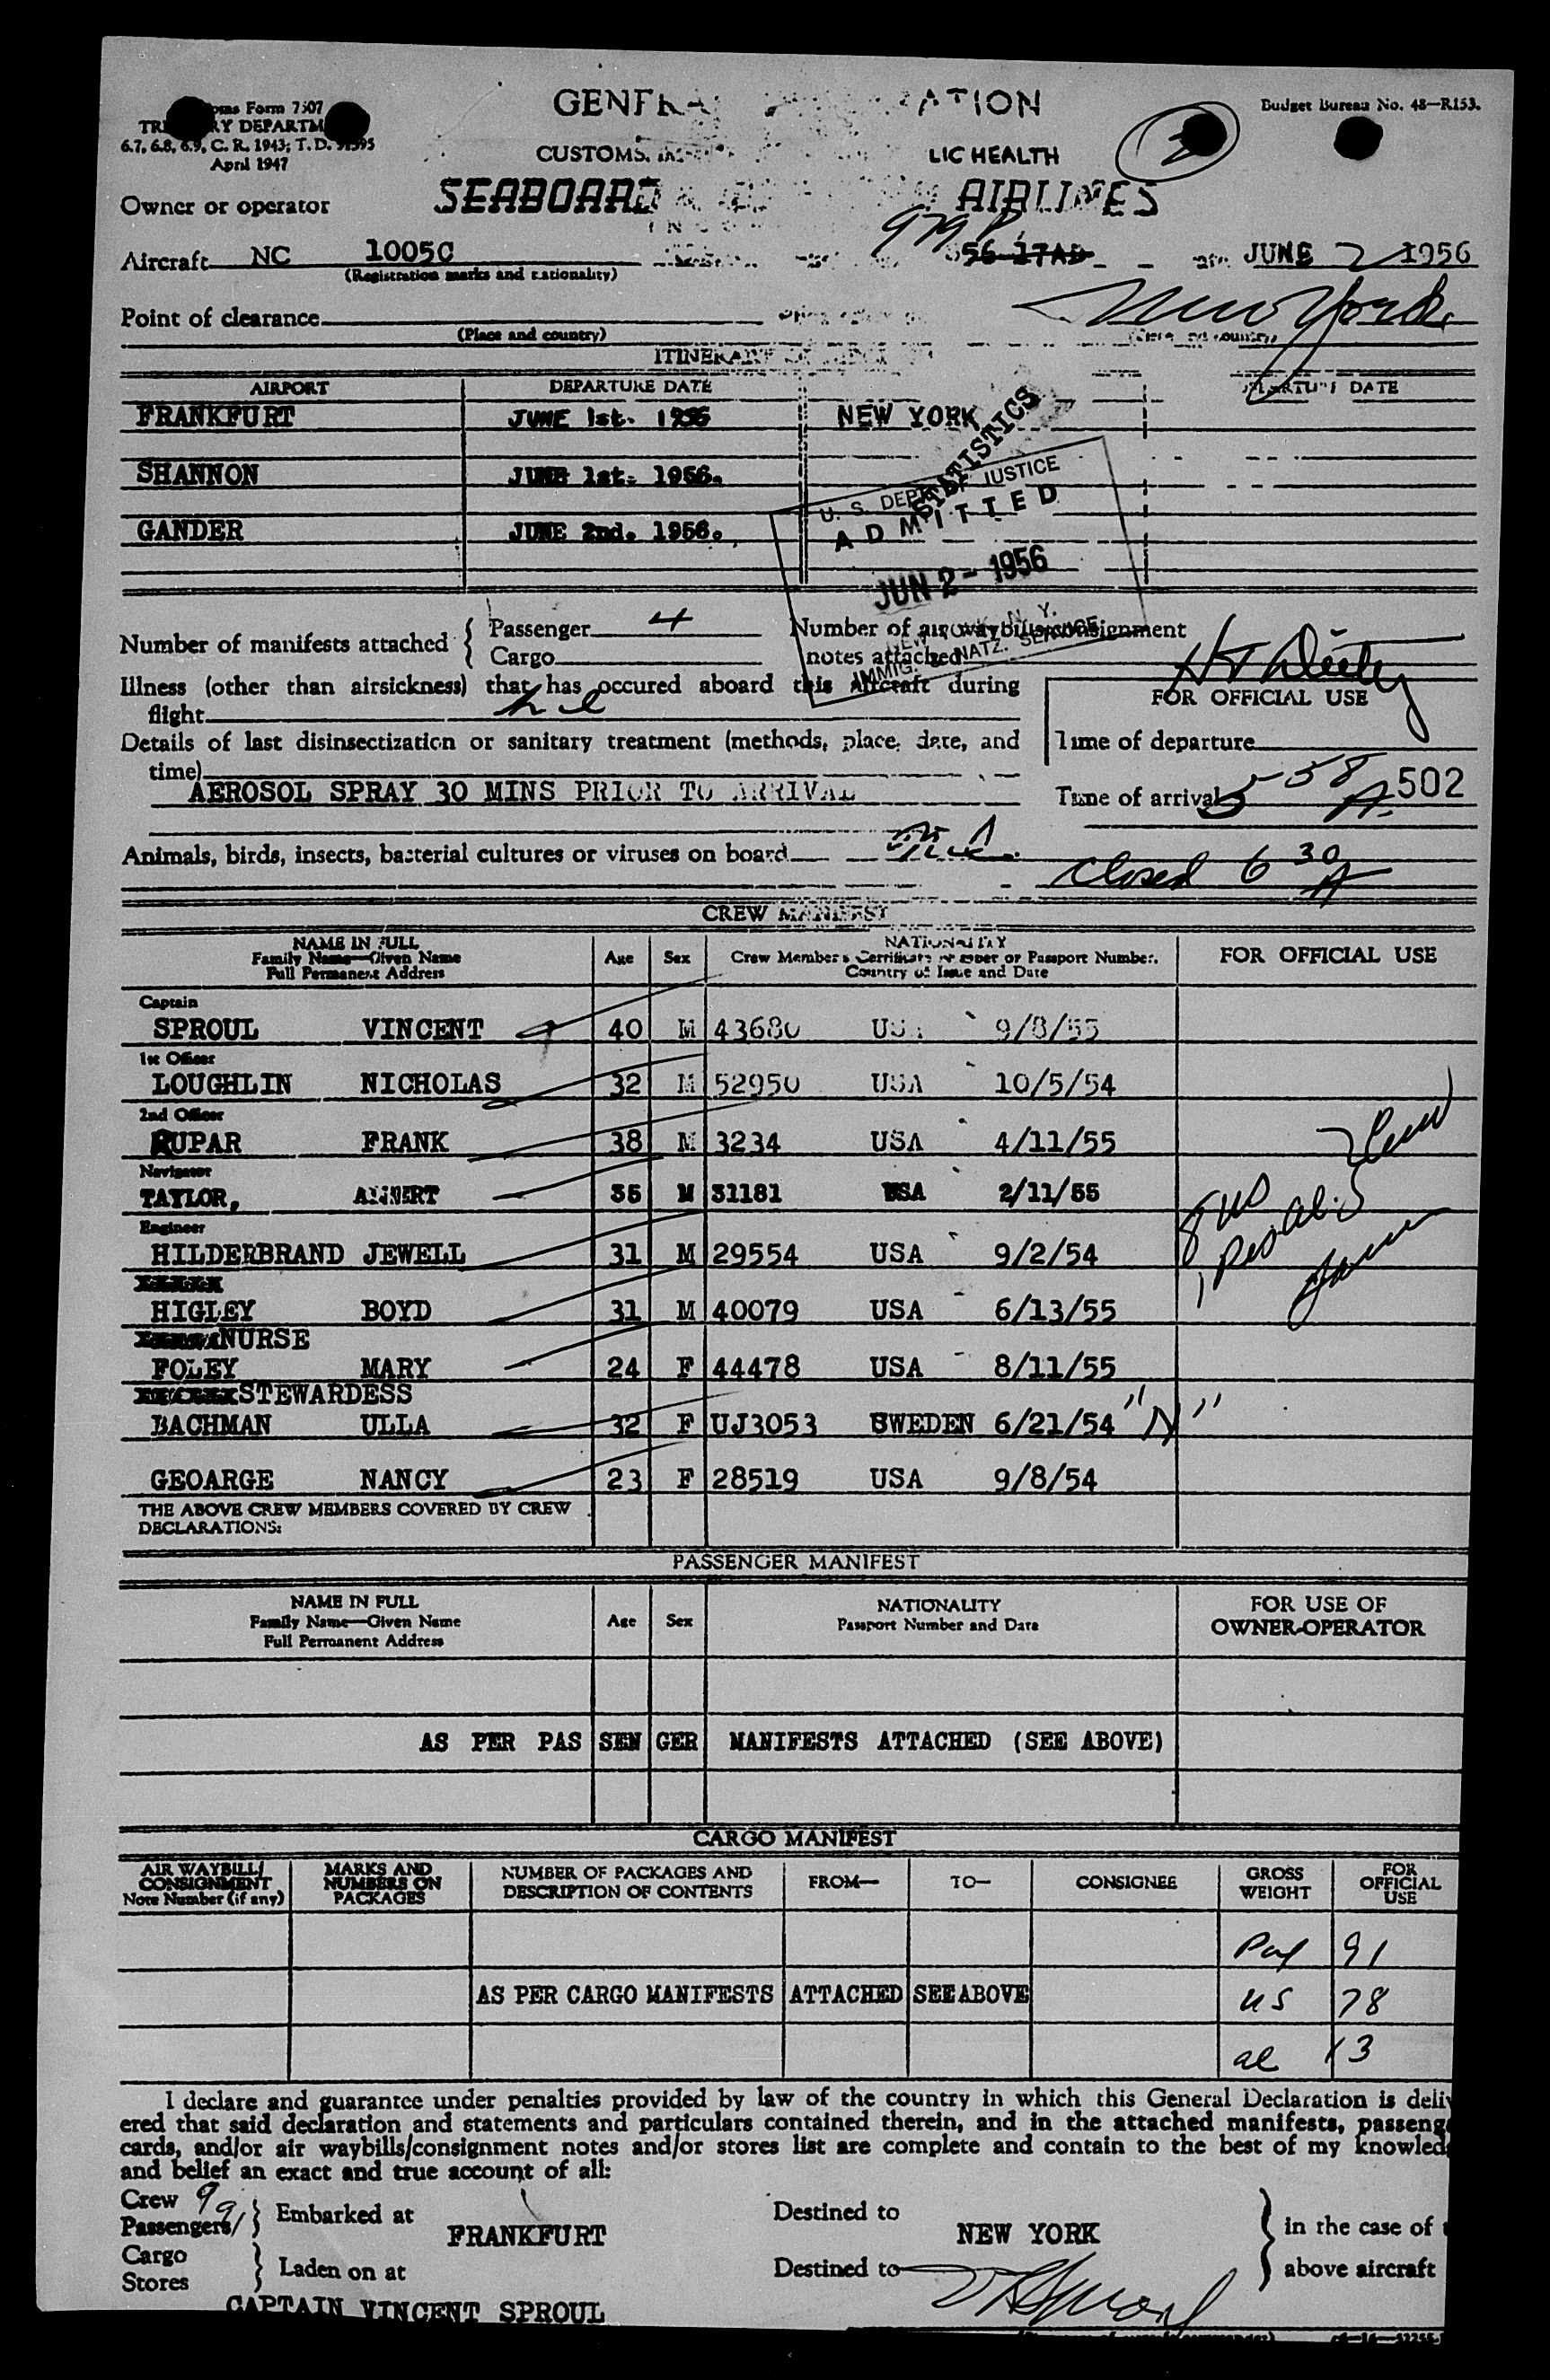 Form 7507
GENERAL DECLARATION
Budget Bureau No. 48—R153.
6.7, 6.8, 6.9, C. R. 1943; T. D.
April 1947
CUSTOMS, LIC HEALTH
Owner or operator SEABOARD AIRLINES
Aircraft NC 1005C JUNE 2 1956
(Registration marks and nationality)
Point of clearance New York
(Place and country)
AIRPORT DEPARTURE DATE DEPARTURE DATE
FRANKFURT JUNE 1st. 1956 NEW YORK
STATISTICS
SHANNON JUNE 1st. 1956.
GANDER JUNE 2nd. 1956.
U. S. DEPT. OF JUSTICE
ADMITTED
JUN 2 - 1956
Number of manifests attached { Passenger 4
Cargo
Number of air waybills/consignment
notes attached
Illness (other than airsickness) that has occured aboard this Aircraft during
flight
FOR OFFICIAL USE
Details of last disinsectization or sanitary treatment (methods, place, date, and
time)
Time of departure
AEROSOL SPRAY 30 MINS PRIOR TO ARRIVAL
Time of arrival 5 58 A. 502
Animals, birds, insects, bacterial cultures or viruses on board
closed 6 30 A
CREW MANIFEST
NAME IN FULL
Family Name—Given Name
Full Permanent Address
Age Sex
NATIONALITY
Crew Members Certificate Number or Passport Number.
Country of Issue and Date
FOR OFFICIAL USE
Captain
SPROUL VINCENT 40 M 43680 USA 9/8/55
1st Officer
LOUGHLIN NICHOLAS 32 M 52950 USA 10/5/54
2nd Officer
RUPAR FRANK 38 M 3234 USA 4/11/55
Navigator
TAYLOR, 35 M 31181 USA 2/11/55
Engineer
HILDERBRAND JEWELL 31 M 29554 USA 9/2/54
HIGLEY BOYD 31 M 40079 USA 6/13/55
NURSE
FOLEY MARY 24 F 44478 USA 8/11/55
STEWARDESS
BACHMAN ULLA 32 F UJ3053 SWEDEN 6/21/54 "N"
GEOARGE NANCY 23 F 28519 USA 9/8/54
THE ABOVE CREW MEMBERS COVERED BY CREW
DECLARATIONS:
PASSENGER MANIFEST
NAME IN FULL
Family Name—Given Name
Full Permanent Address
Age Sex
NATIONALITY
Passport Number and Date
FOR USE OF
OWNER-OPERATOR
AS PER PAS SEN GER MANIFESTS ATTACHED (SEE ABOVE)
CARGO MANIFEST
AIR WAYBILL/
CONSIGNMENT
Note Number (if any)
MARKS AND
NUMBERS ON
PACKAGES
NUMBER OF PACKAGES AND
DESCRIPTION OF CONTENTS
FROM— TO— CONSIGNEE
GROSS
WEIGHT
FOR
OFFICIAL
USE
91
AS PER CARGO MANIFESTS ATTACHED SEE ABOVE US 78
al 13
I declare and guarantee under penalties provided by law of the country in which this General Declaration is deliv
ered that said declaration and statements and particulars contained therein, and in the attached manifests, passeng
cards, and/or air waybills/consignment notes and/or stores list are complete and contain to the best of my knowled
and belief an exact and true account of all:
Crew 9
Passengers 91 } Embarked at FRANKFURT Destined to NEW YORK } in the case of
Cargo
Stores } Laden on at Destined to above aircraft
CAPTAIN VINCENT SPROUL